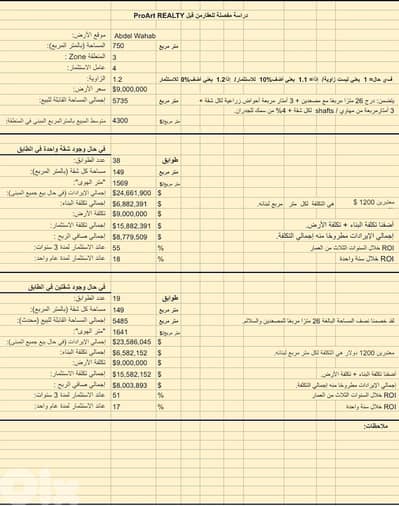 دراسة مفصلة للعقار من قبل ProArt REALTY
موقع الأرض: Abdel Wahab
المساحة (بالمتر المربع): 750 متر مربع
المنطقة Zone : 3
عامل الاستثمار: 4
الزاوية: 1.2 في حال= 1 يعني ليست زاوية/ اذا= 1.1 يعني اضف 10% للاستثمار/ اذا= 1.2 يعني اضف 8% للاستثمار
سعر الأرض: $9,000,000
إجمالي المساحة القابلة للبيع: 5735 متر مربع
يتضمن: درج 26 مترًا مربعًا مع مصعدين + 3 أمتار مربعة أحواض زراعية لكل شقة +
3 أمتار مربعة من مهاوي / shafts لكل شقة + 4% من سمك للجدران.
متوسط المبيع بالمتر المربع المبني في المنطقة: 4300 متر مربع/$
في حال وجود شقة واحدة في الطابق
عدد الطوابق: 38 طوابق
مساحة كل شقة (بالمتر المربع): 149 متر مربع
"متر الهوى": 1569 متر مربع/$
إجمالي الإيرادات (في حال بيع جميع المبنى): $24,661,900 $
إجمالي تكلفة البناء: $6,882,391 $ معتبرين 1200 $ هي التكلفة لكل متر مربع لبنائه.
تكلفة الأرض: $9,000,000 $
إجمالي تكلفة الاستثمار: $15,882,391 $ أضفنا تكلفة البناء + تكلفة الأرض.
إجمالي صافي الربح : $8,779,509 $ إجمالي الإيرادات مطروحًا منه إجمالي التكلفة.
عائد الاستثمار لمدة 3 سنوات: 55 % ROI خلال السنوات الثلاث من العمار
عائد الاستثمار لمدة عام واحد: 18 % ROI خلال سنة واحدة
في حال وجود شقتين في الطابق
عدد الطوابق: 19 طوابق
مساحة كل شقة (بالمتر المربع): 149 متر مربع
إجمالي المساحة القابلة للبيع (محدث): 5485 متر مربع لقد خصمنا نصف المساحة البالغة 26 مترًا مربعًا للمصعدين والسلالم.
"متر الهوى": 1641 متر مربع/$
إجمالي الإيرادات (في حال بيع جميع المبنى): $23,586,045 $
إجمالي تكلفة البناء: $6,582,152 $ معتبرين 1200 دولار هي التكلفة لكل متر مربع لبنائه.
تكلفة الأرض: $9,000,000 $
إجمالي تكلفة الاستثمار: $15,582,152 $ أضفنا تكلفة البناء + تكلفة الأرض.
إجمالي صافي الربح : $8,003,893 $ إجمالي الإيرادات مطروحًا منه إجمالي التكلفة.
عائد الاستثمار لمدة 3 سنوات: 51 % ROI خلال السنوات الثلاث من العمار
عائد الاستثمار لمدة عام واحد: 17 % ROI خلال سنة واحدة
ملاحظات:
olx